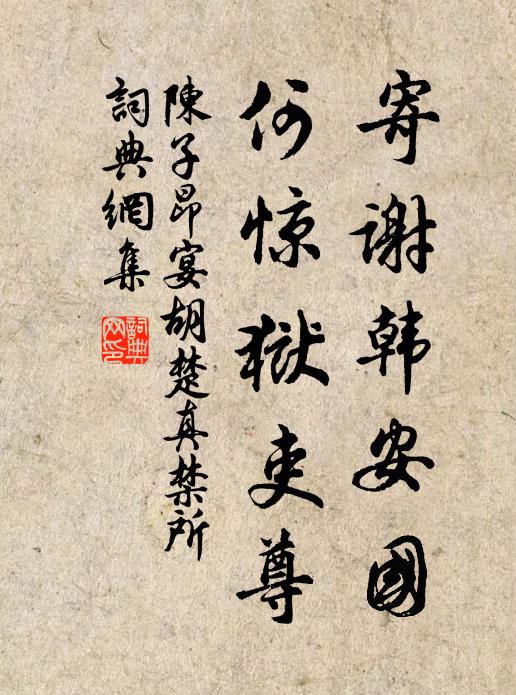 寄谢韩安國
何惊獄吏尊
陳子昂宴胡楚真禁所
詞典網集
詞典網印